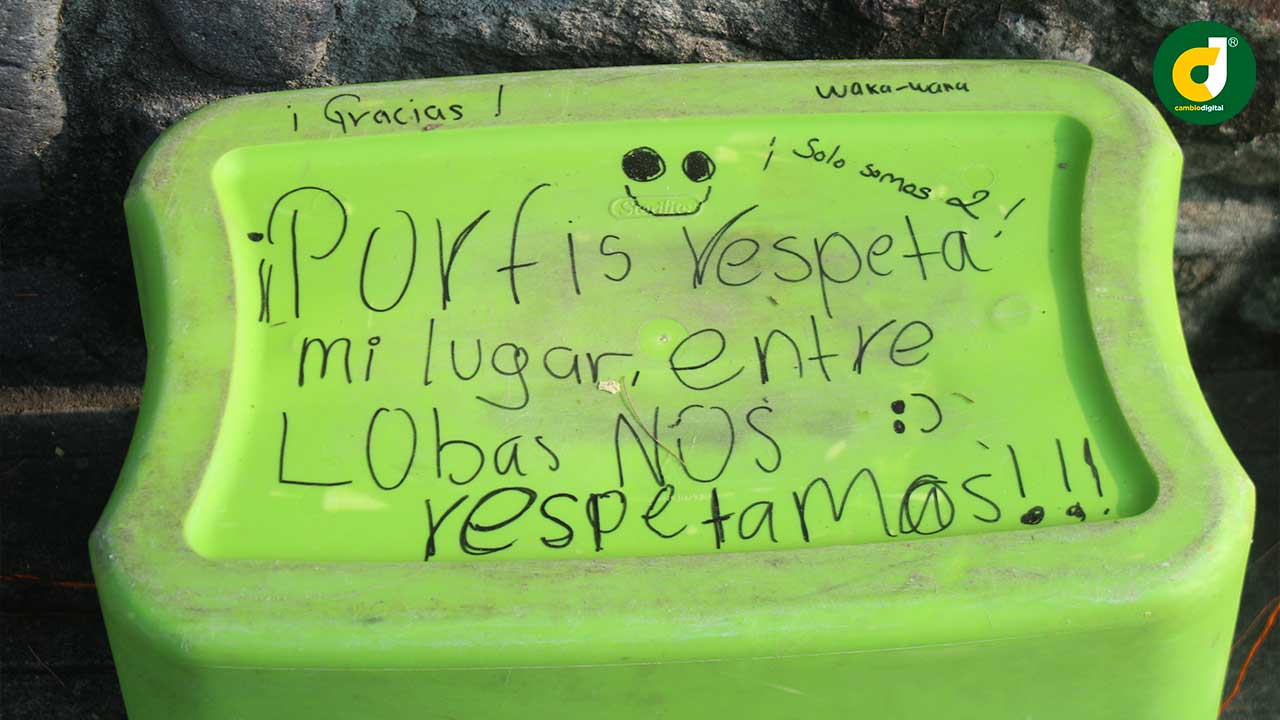 ¡ Gracias !
waka-waka
¡ Solo somos 2 !
Sterilite
¡Porfis respeta
mi lugar, entre
LObas NOS :)
respetamos!!!
cambiodigital